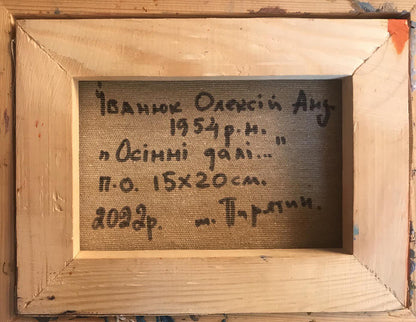 Іванюк Олексій Анд.
1954 р.н.
„Осінні далі..."
п.о. 15х20см.
2022р. м. Пирятин.